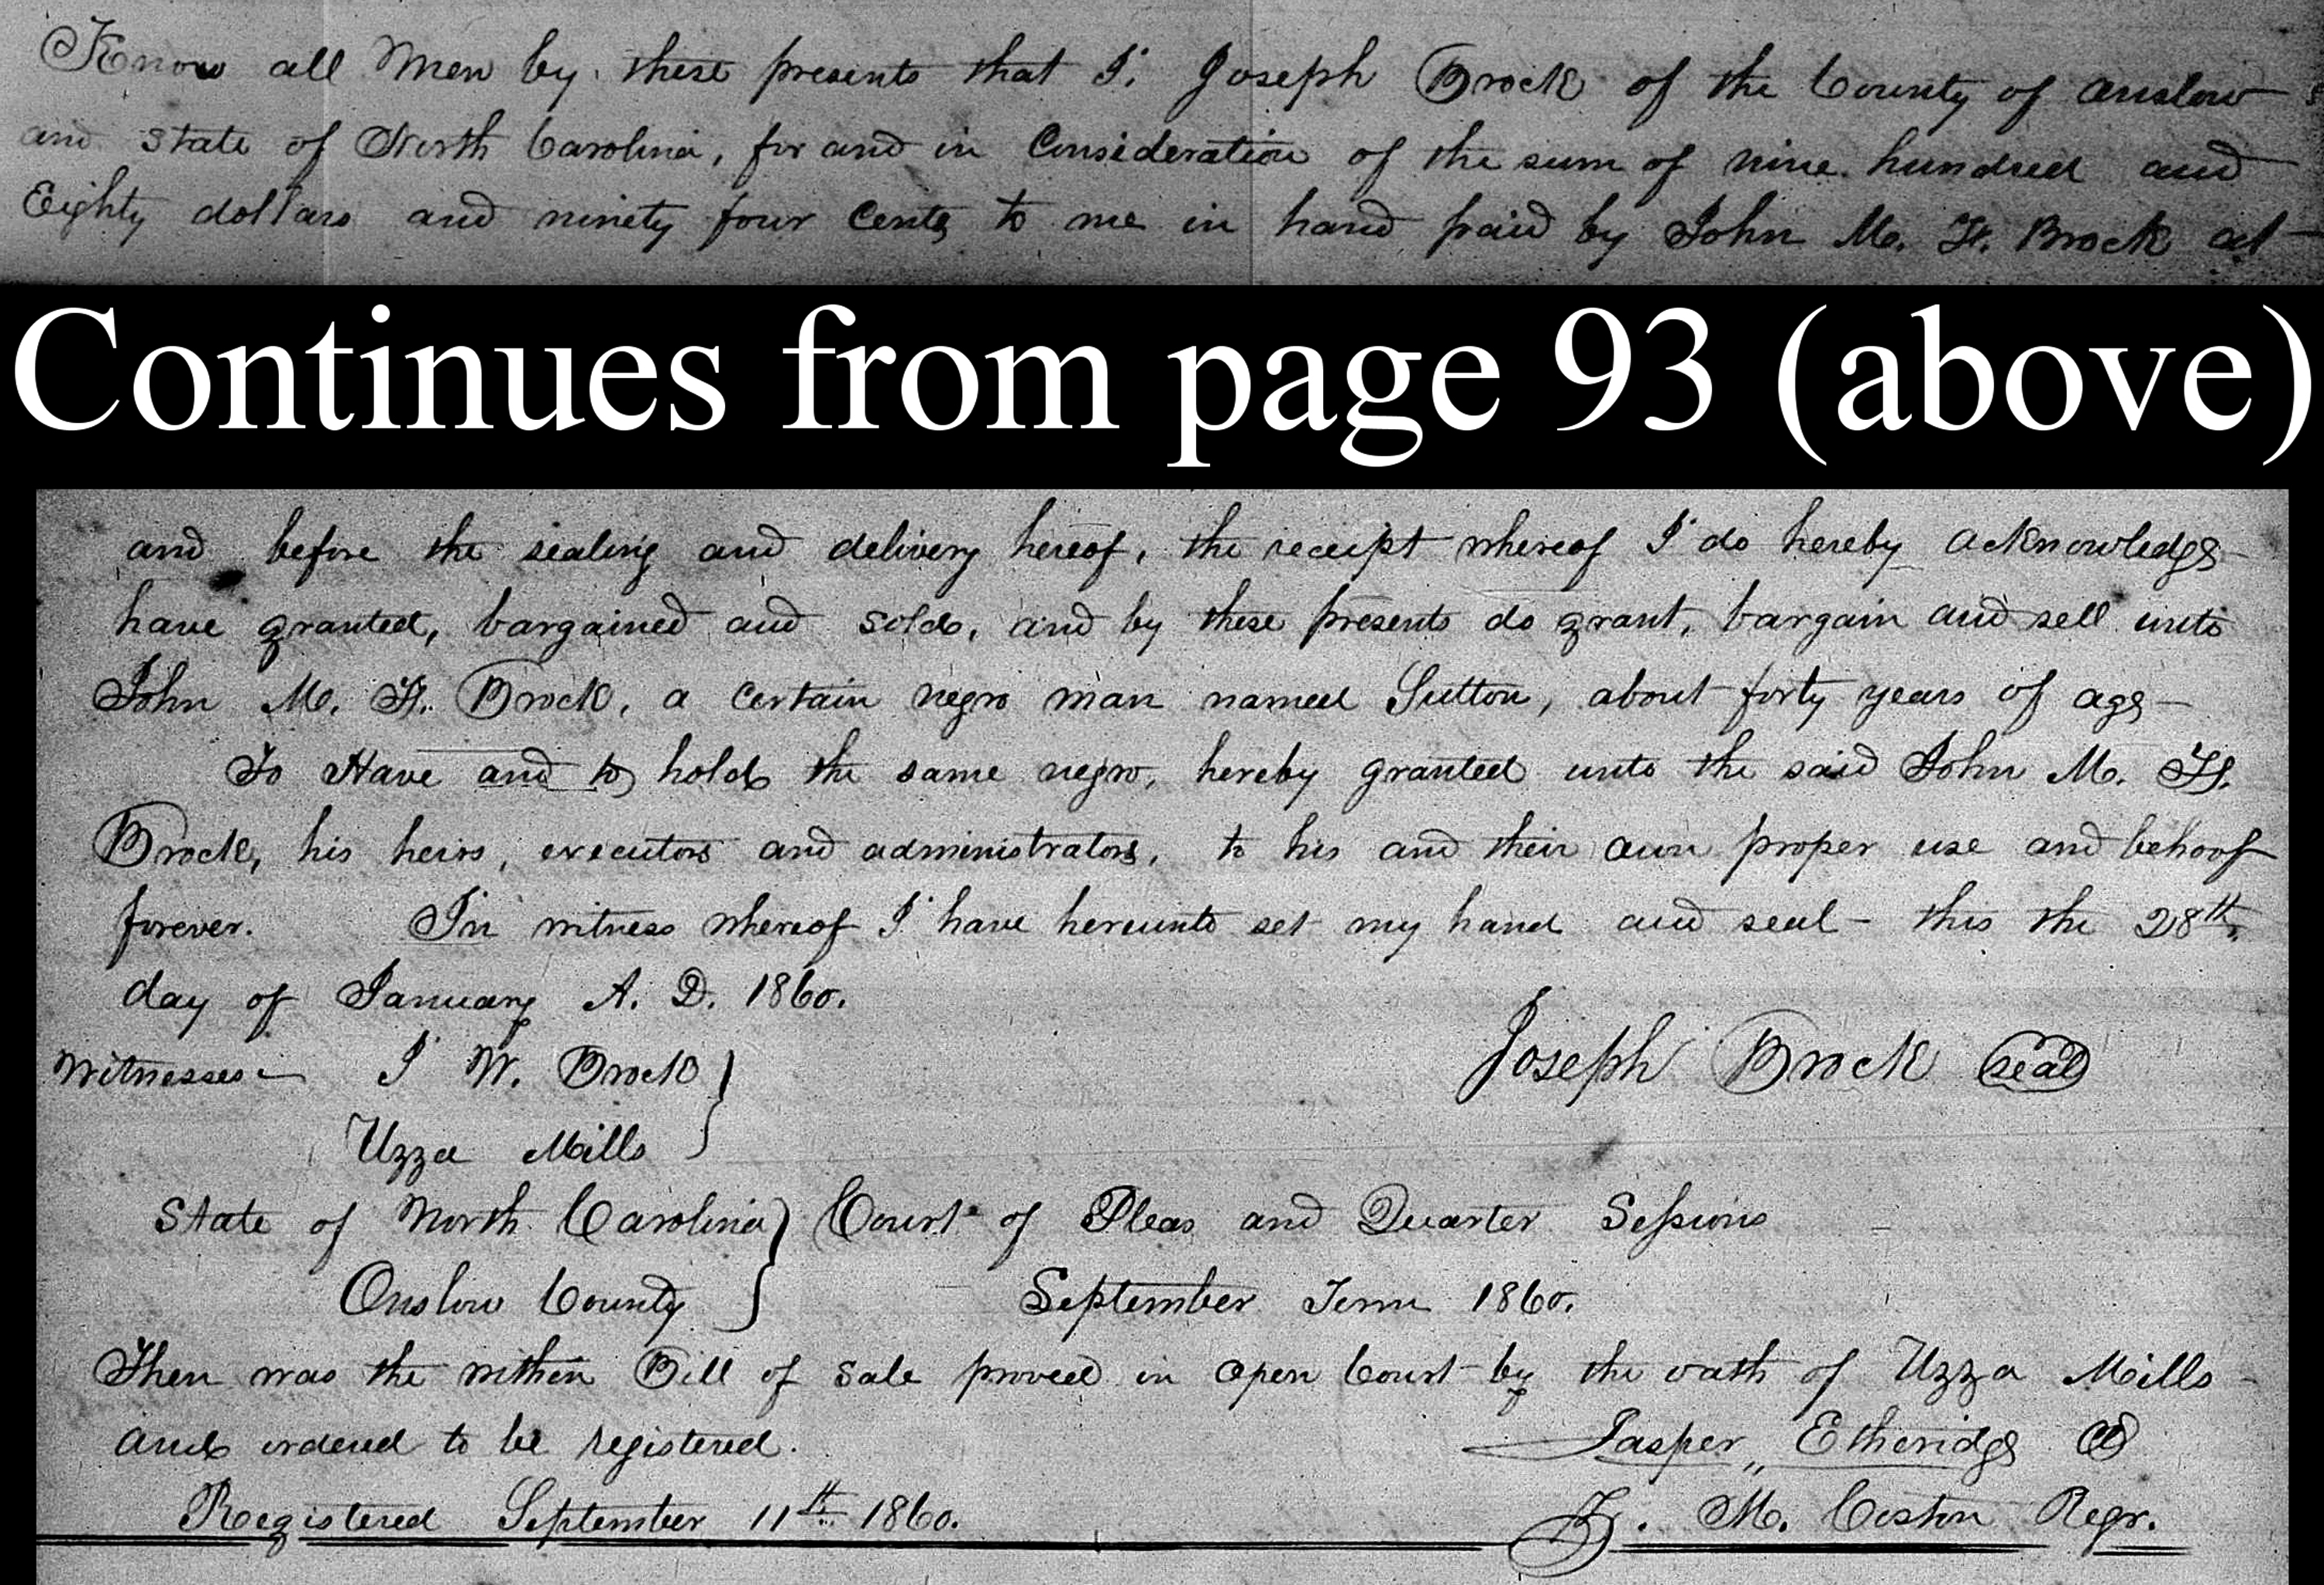 Know all Men by these presents that I, Joseph Brock of the County of Onslow
and State of North Carolina, for and in Consideration of the sum of nine hundred and
Eighty dollars and ninety four Cents to me in hand paid by John M. F. Brock at
Continues from page 93 (above)
and before the sealing and delivery hereof, the receipt whereof I do hereby acknowledge
have granted, bargained and sold, and by these presents do grant, bargain and sell unto
John M. F. Brock, a certain negro man named Sutton, about forty years of age —
To Have and to hold the same negro, hereby granted unto the said John M. F.
Brock, his heirs, executors and administrators, to his and their own proper use and behoof
forever. In witness whereof I have hereunto set my hand and seal - this the 28th
day of January A. D. 1860.
Witnesses — I W. Brock } Joseph Brock seal
Uzza Mills
State of North Carolina } Court of Pleas and Quarter Sessions
Onslow County } September Term 1860.
Then was the within Bill of Sale proved in open Court by the oath of Uzza Mills
and ordered to be registered. Jasper Etheridge
Registered September 11th 1860. M. Coston Regr.